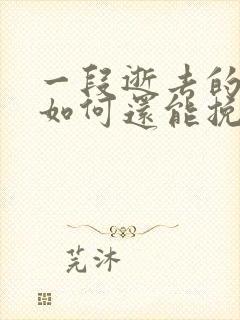 一段逝去的
如何還能挽
芫沐